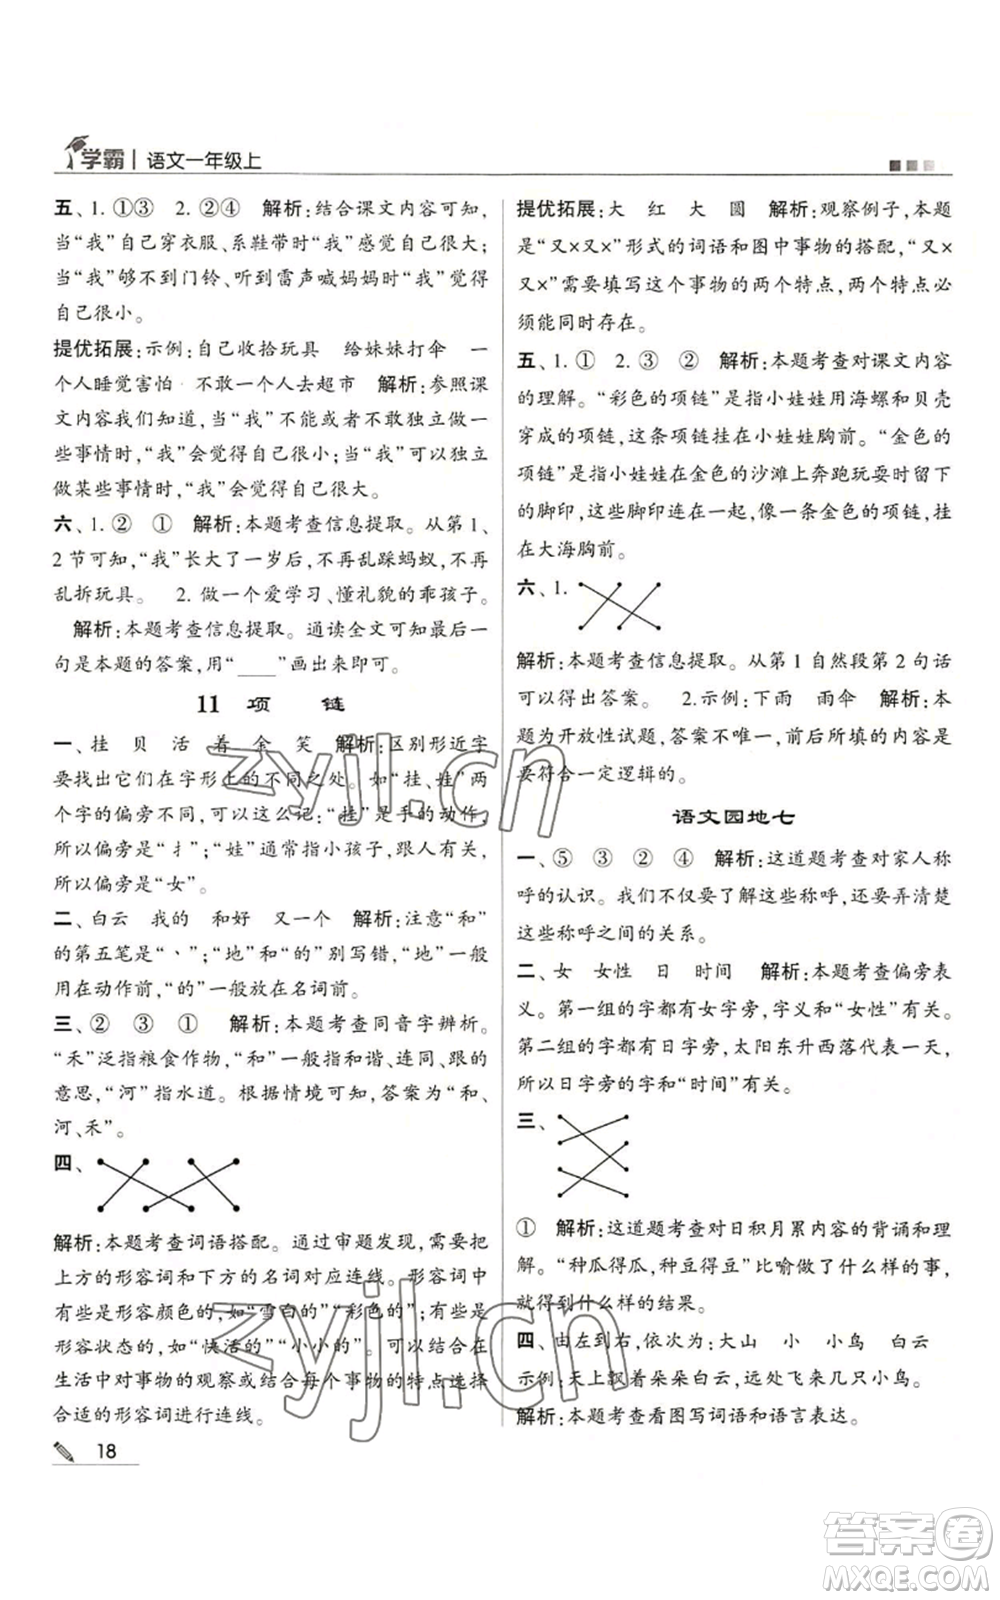 学霸 | 语文一年级上
五、1. ①③　2. ②④　解析:结合课文内容可知,
当“我”自己穿衣服、系鞋带时“我”感觉自己很大;
当“我”够不到门铃、听到雷声喊妈妈时“我”觉得
自己很小。
提优拓展:示例:自己收拾玩具　给妹妹打伞　一
个人睡觉害怕　不敢一个人去超市　解析:参照课
文内容我们知道,当“我”不能或不敢独立做一
些事情时,“我”会觉得自己很小;当“我”可以独立
做某些事情时,“我”会觉得自己很大。
六、1. ②　①　解析:本题考查信息提取。从第1、
2节可知,“我”长大了一岁后,不再乱踩蚂蚁,不再
乱拆玩具。　2. 做一个爱学习、懂礼貌的乖孩子。
解析:本题考查信息提取。通读全文可知最后一
句是本题的答案,用“＿＿”画出来即可。
11　项　链
一、挂　贝　活　着　金　笑　解析:区别形近字
要找出它们在字形上的不同之处。如“挂、娃”两
个字的偏旁不同,可以这么记:“挂”是手的动作,
所以偏旁是“扌”;“娃”通常指小孩子,跟人有关,
所以偏旁是“女”。
二、白云　我的　和好　又一个　解析:注意“和”
的第五笔是“丶”;“地”和“的”别写错,“地”一般
用在动作前,“的”一般放在名词前。
三、②　③　①　解析:本题考查同音字辨析。
“禾”泛指粮食作物,“和”一般指和谐、连同、跟的
意思,“河”指水道。根据情境可知,答案为“和、
河、禾”。
四、
解析:本题考查词语搭配。通过审题发现,需要把
上方的形容词和下方的名词对应连线。形容词中
有些是形容颜色的,如“雪白的”“彩色的”;有些是
形容状态的,如“快活的”“小小的”。可以结合在
生活中对事物的观察或结合每个事物的特点选择
合适的形容词进行连线。
18
提优拓展:大　红　大　圆　解析:观察例子,本题
是“又×又×”形式的词语和图中事物的搭配,“又×
又×”需要填写这个事物的两个特点,两个特点必
须能同时存在。
五、1. ①　2. ③　②　解析:本题考查对课文内容
的理解。“彩色的项链”是指小娃娃用海螺和贝壳
穿成的项链,这条项链挂在小娃娃胸前。“金色的
项链”是指小娃娃在金色的沙滩上奔跑玩耍时留下
的脚印,这些脚印连在一起,像一条金色的项链,挂
在大海胸前。
六、1.
解析:本题考查信息提取。从第1自然段第2句话
可以得出答案。　2.示例:下雨　雨伞　解析:本
题为开放性试题,答案不唯一,前后所填的内容要
要符合一定逻辑的。
语文园地七
一、⑤　③　②　④　解析:这道题考查对家人称
呼的认识。我们除了要了解这些称呼,还要弄清楚
这些称呼之间的关系。
二、女　女性　日　时间　解析:本题考查偏旁表
义。第一组的字都有女字旁,字义和“女性”有关。
第二组的字都有日字旁,太阳东升西落代表一天,
所以日字旁的字和“时间”有关。
三、
①　解析:这道题考查对日积月累内容的背诵和理
解。“种瓜得瓜,种豆得豆”比喻做了什么样的事,
就得到什么样的结果。
四、由左到右,依次为:大山　小　小鸟　白云
示例:天上飘着朵朵白云,远处飞来一只小鸟。
解析:本题考查看图写词语和语言表达。
zyjl.cn
zyjl.cn
答案圈
MXQE.COM